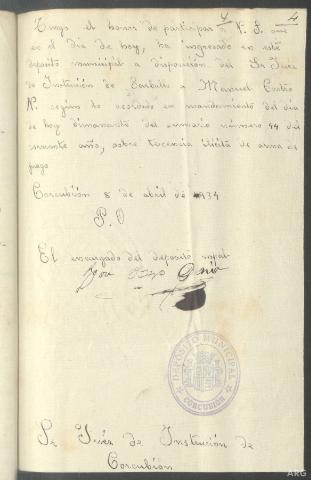 4 4
Tengo el honor de participar á V. S. que
en el dia de hoy, ha ingresado en este
deposito municipal a disposición del Sr Juez
de Instrución de Carballo a Manuel Castro
N. segun lo acordado en mandamiento del dia
de hoy dimanante del sumario número 44 del
corriente año, sobre tenencia ilicita de arma de
fuego
Corcubión 8 de abril de 1934
P. O
El encargado del deposito mpal
Sr Juéz de Instrución de
Corcubión
DEPÓSITO MUNICIPAL
CORCUBIÓN
ARG